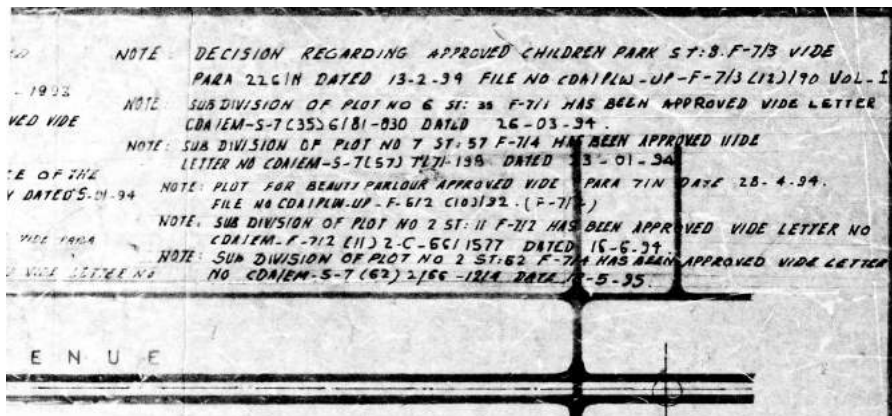 NOTE: DECISION REGARDING APPROVED CHILDREN PARK ST:8. F-7/3 VIDE
PARA 226/N DATED 13-2-94 FILE NO CDA/PLW-UP-F-7/3 (12)/90 VOL-I
- 1993
NOTE: SUB DIVISION OF PLOT NO 6 ST: 35 F-7/1 HAS BEEN APPROVED VIDE LETTER
VED VIDE
CDA/EM-S-7(35)6/81-030 DATED 26-03-94.
NOTE: SUB DIVISION OF PLOT NO 7 ST: 57 F-7/4 HAS BEEN APPROVED VIDE
LETTER NO CDA/EM-S-7(57) DATED 23-01-94
CE OF THE
Y DATED 5-01-94
NOTE: PLOT FOR BEAUTY PARLOUR APPROVED VIDE PARA 7/N DATE 28-4-94.
FILE NO CDA/PLW-UP-F-6/2 (10)/92. (F-7/
NOTE. SUB DIVISION OF PLOT NO 2 ST: 11 F-7/2 HAS BEEN APPROVED VIDE LETTER NO
CDA/EM-F-7/2 (11) 2-C-66/1577 DATED 16-6-94.
VIDE PARA
NOTE: SUB DIVISION OF PLOT NO 2 ST:62 F-7/4 HAS BEEN APPROVED VIDE LETTER
VIDE LETTER NO
NO CDA/EM-S-7(62) 2/66-1214 DATE -5-95.
E N U E